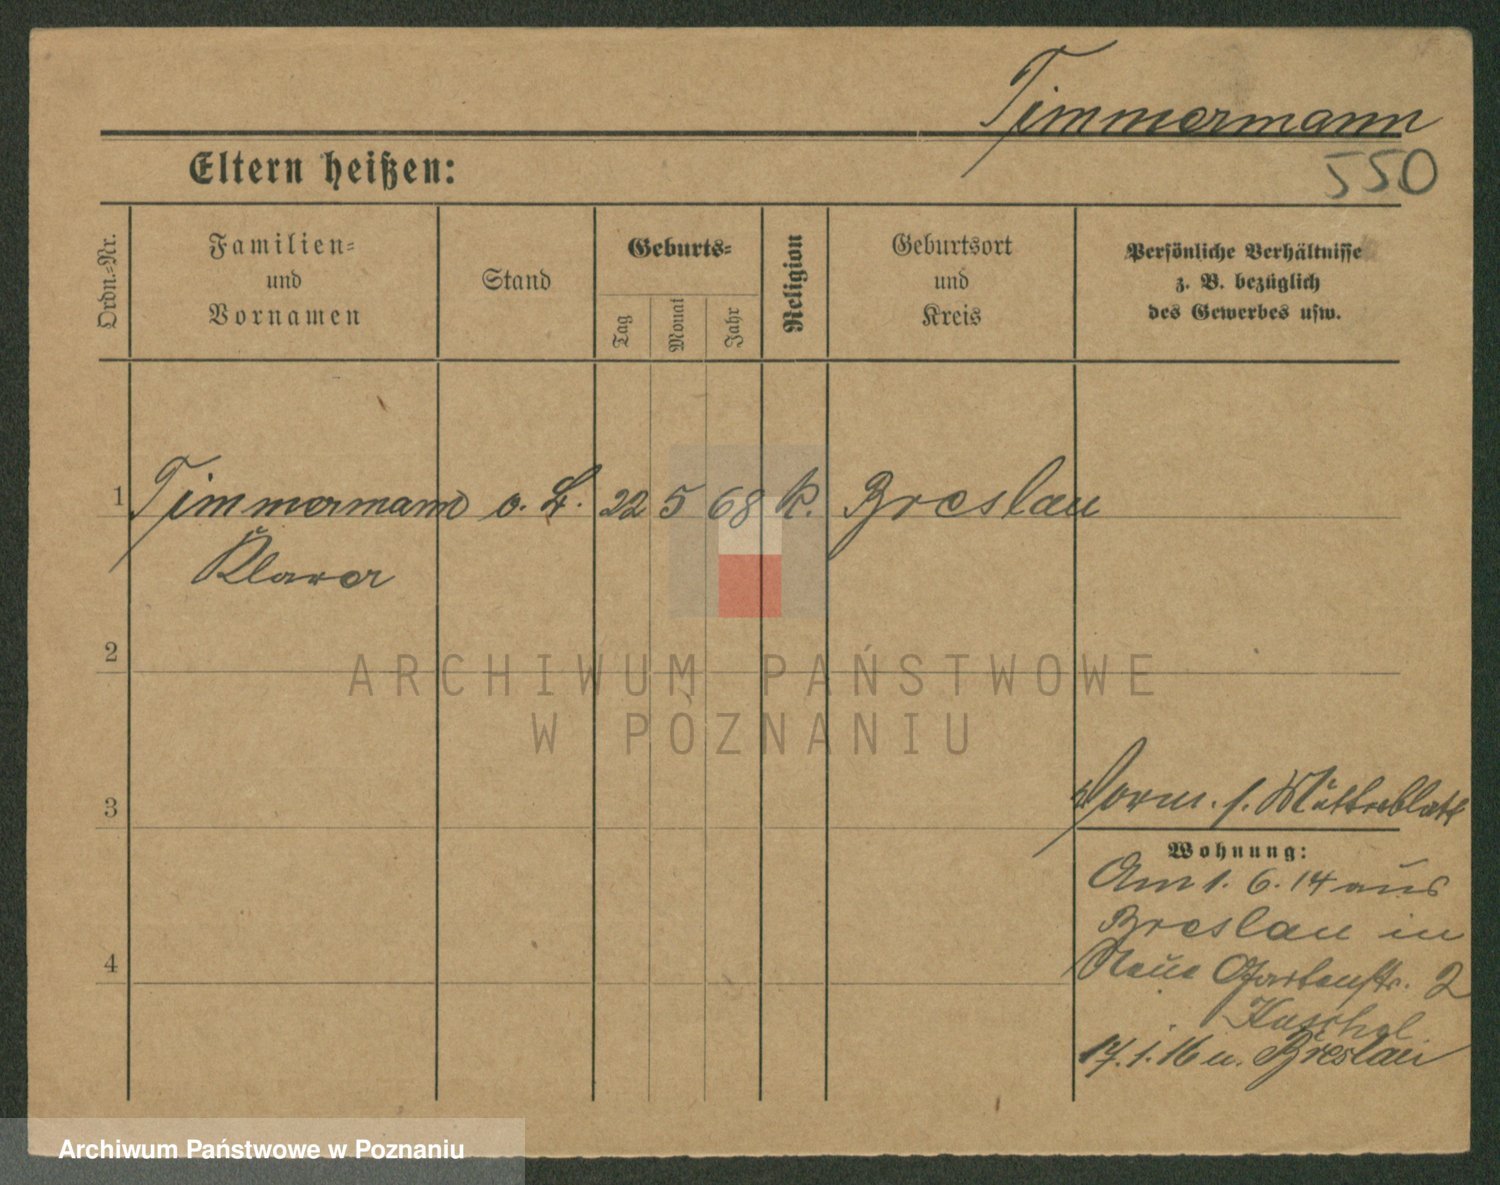 Timmermann
550
Eltern heißen:
Ordn.-Nr.
Familien-
und
Vornamen
Stand
Geburts-
Tag
Monat
Jahr
Religion
Geburtsort
und
Kreis
Persönliche Verhältnisse
z. B. bezüglich
des Gewerbes usw.
1 Timmermann o. 22 5 68 k. Breslau
Klara
2
ARCHIWUM PAŃSTWOWE
W POZNANIU
3
Vorm. s. Mutterblatt
Wohnung:
Am 1. 6. 14 aus
Breslau in
4
Neue Gartenstr. 2
17. 1. 16 n. Breslau
Archiwum Państwowe w Poznaniu